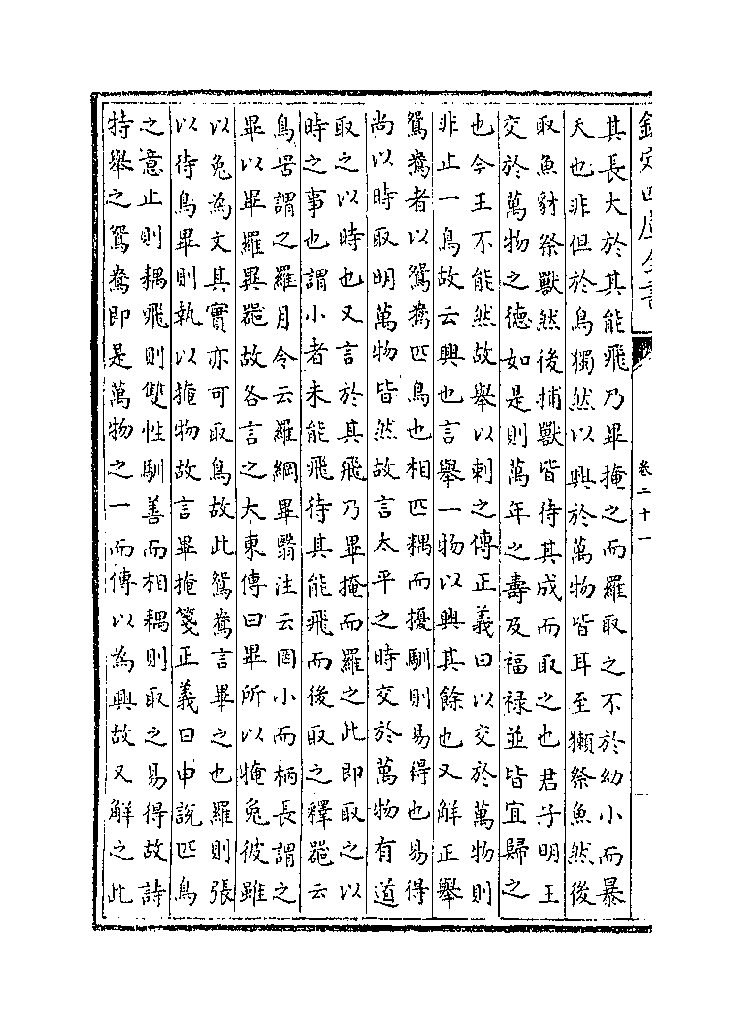 欽定四庫全書
卷二十一
其長大於其能飛乃畢掩之而羅取之不於幼小而暴
天也非但於鳥獨然以興於萬物皆耳至獺祭魚然後
取魚豺祭獸然後捕獸皆待其成而取之也君子明王
交於萬物之德如是則萬年之壽及福祿並皆宜歸之
也今王不能然故舉以刺之傳正義曰以交於萬物則
非止一鳥故云興也言舉一物以興其餘也又解正舉
鴛鴦者以鴛鴦匹鳥也相匹耦而擾馴則易得也易得
尚以時取明萬物皆然故言太平之時交於萬物有道
取之以時也又言於其飛乃畢掩而羅之此即取之以
時之事也謂小者未能飛待其能飛而後取之釋器云
鳥罟謂之羅月令云羅網畢翳注云罔小而柄長謂之
畢以畢羅異器故各言之大東傳曰畢所以掩兔彼雖
以兔為文其實亦可取鳥故此鴛鴦言畢之也羅則張
以待鳥畢則執以掩物故言畢掩箋正義曰申說匹鳥
之意止則耦飛則雙性馴善而相耦則取之易得故詩
特舉之鴛鴦即是萬物之一而傳以為興故又解之此